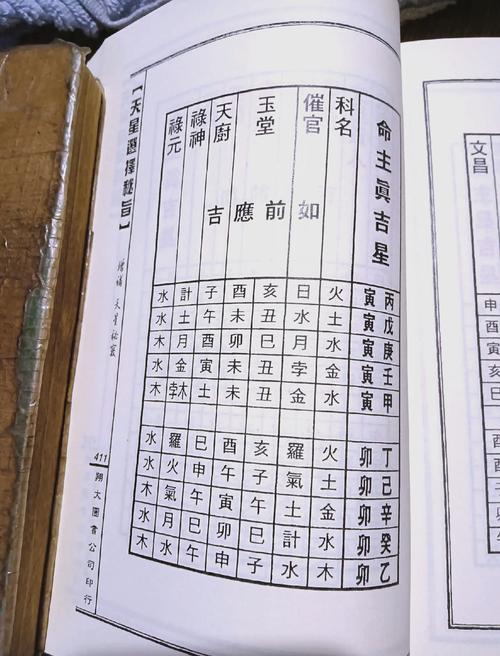 文昌
命主眞吉星 丙寅 戊寅 庚寅 壬寅 甲寅 丁卯 己卯 辛卯 癸卯 乙卯
科名 火 土 水 金 水 火 土 金 水 木
催官 日 水 月 孛 金 羅 氣 土 計 水
玉堂 亥 丑 巳 丑 亥 子 午 巳 子
酉 未 卯 未 酉 午 寅 卯 申
天廚 子 午 酉 寅 土 巳 申 午 巳 午
祿神 計 土 月 金 孛木 羅 火 氣 月 水
祿元 水 水 木 水 木 水 水 木 水 木
如前應吉
【天星選擇秘旨】
增補 天星秘竅
411
翔大圖書公司印行